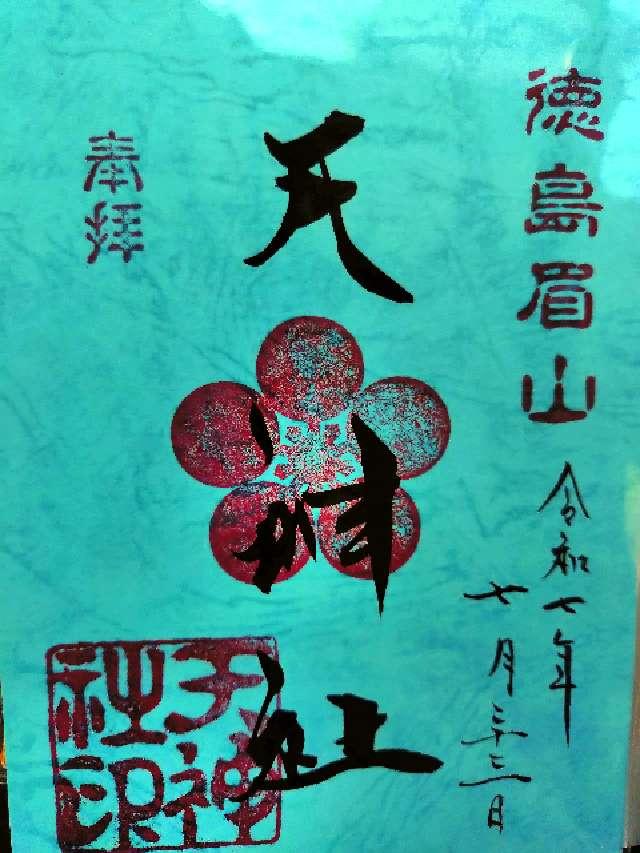 徳島眉山
令和七年
七月二十二日
天神社
奉拝
天神
社印